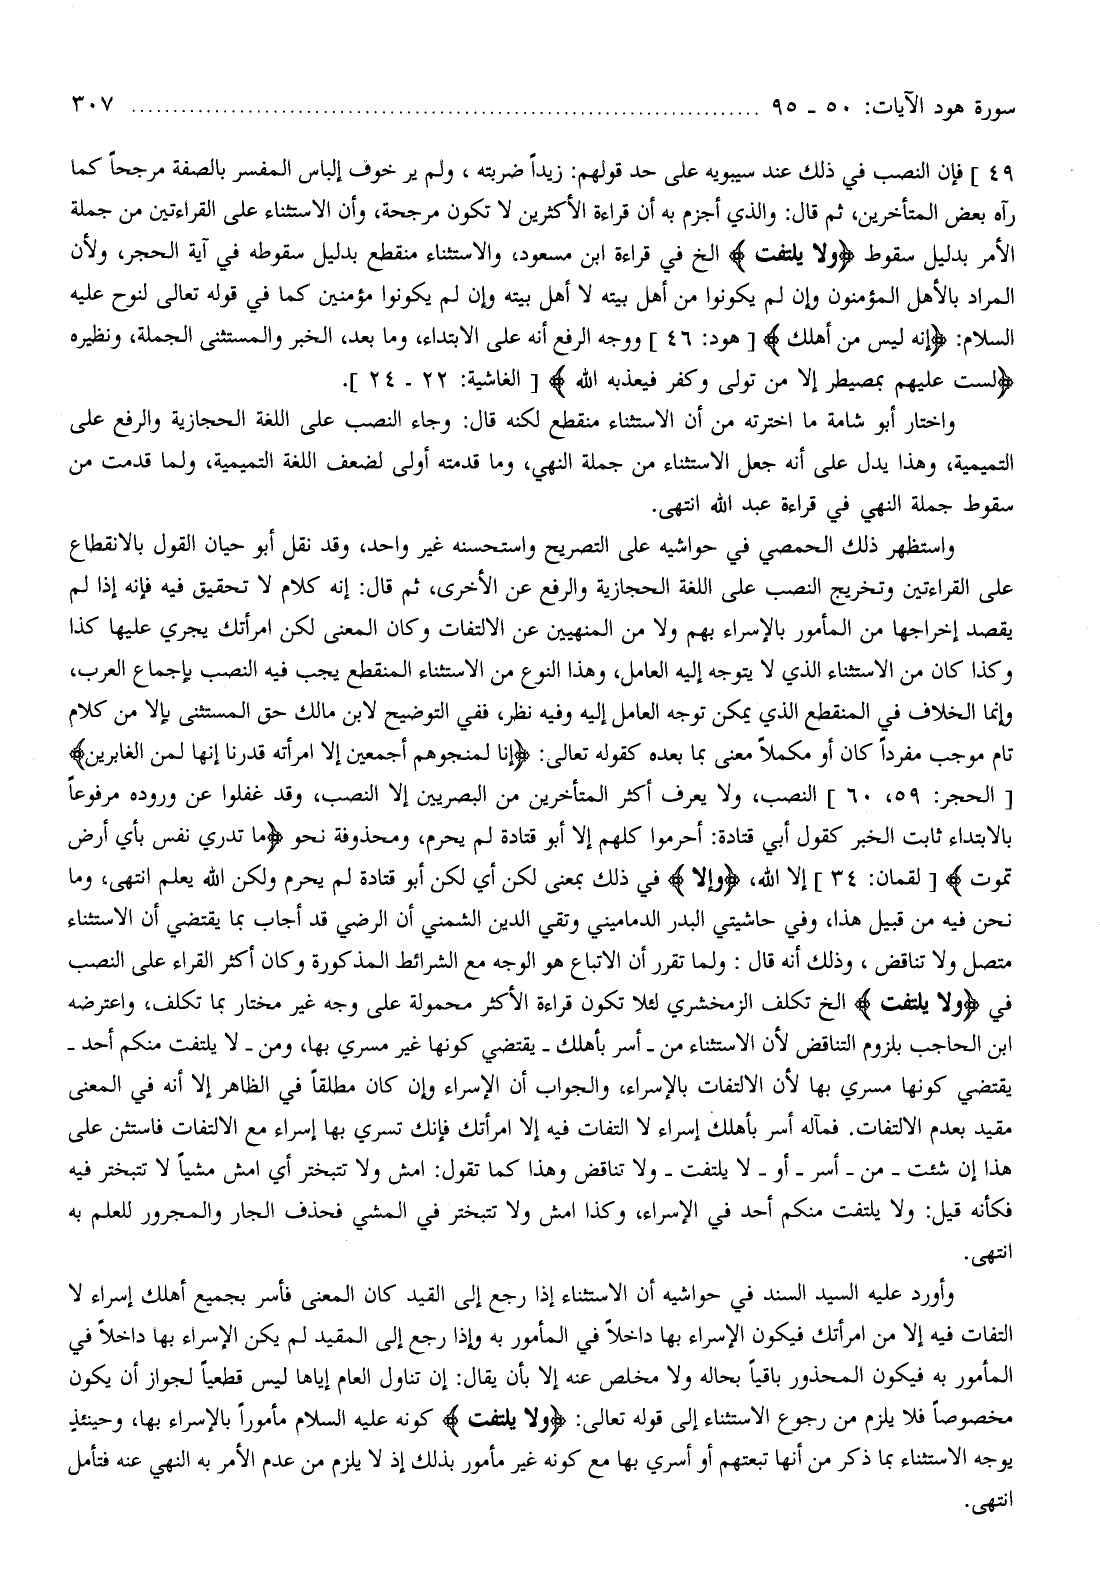 سورة هود الآيات: ٥٠ ـ ٩٥ ........................................................................ ٣٠٧
٤٩ ] فإن النصب في ذلك عند سيبويه على حد قولهم: زيداً ضربته ، ولم ير خوف إلباس المفسر بالصفة مرجحاً كما
رآه بعض المتأخرين، ثم قال: والذي أجزم به أن قراءة الأكثرين لا تكون مرجحة، وأن الاستثناء على القراءتين من جملة
الأمر بدليل سقوط ﴿ولا يلتفت ﴾ الخ في قراءة ابن مسعود، والاستثناء منقطع بدليل سقوطه في آية الحجر، ولأن
المراد بالأهل المؤمنون وإن لم يكونوا من أهل بيته لا أهل بيته وإن لم يكونوا مؤمنين كما في قوله تعالى لنوح عليه
السلام: ﴿إنه ليس من أهلك ﴾ [ هود: ٤٦ ] ووجه الرفع أنه على الابتداء، وما بعد، الخبر والمستثنى الجملة، ونظيره
﴿لست عليهم بمصيطر إلا من تولى وكفر فيعذبه الله ﴾ [ الغاشية: ٢٢ ـ ٢٤ ].
واختار أبو شامة ما اخترته من أن الاستثناء منقطع لكنه قال: وجاء النصب على اللغة الحجازية والرفع على
التميمية، وهذا يدل على أنه جعل الاستثناء من جملة النهي، وما قدمته أولى لضعف اللغة التميمية، ولما قدمت من
سقوط جملة النهي في قراءة عبد الله انتهى.
واستظهر ذلك الحمصي في حواشيه على التصريح واستحسنه غير واحد، وقد نقل أبو حيان القول بالانقطاع
على القراءتين وتخريج النصب على اللغة الحجازية والرفع عن الأخرى، ثم قال: إنه كلام لا تحقيق فيه فإنه إذا لم
يقصد إخراجها من المأمور بالإسراء بهم ولا من المنهيين عن الالتفات وكان المعنى لكن امرأتك يجري عليها كذا
وكذا كان من الاستثناء الذي لا يتوجه إليه العامل، وهذا النوع من الاستثناء المنقطع يجب فيه النصب بإجماع العرب،
وإنما الخلاف في المنقطع الذي يمكن توجه العامل إليه وفيه نظر، ففي التوضيح لابن مالك حق المستثنى بإلا من كلام
تام موجب مفرداً كان أو مكملاً معنى بما بعده كقوله تعالى: ﴿إنا لمنجوهم أجمعين إلا امرأته قدرنا إنها لمن الغابرين﴾
[ الحجر: ٥٩، ٦٠ ] النصب، ولا يعرف أكثر المتأخرين من البصريين إلا النصب، وقد غفلوا عن وروده مرفوعاً
بالابتداء ثابت الخبر كقول أبي قتادة: أحرموا كلهم إلا أبو قتادة لم يحرم، ومحذوفة نحو ﴿ما تدري نفس بأي أرض
تموت ﴾ [ لقمان: ٣٤ ] إلا الله، ﴿وإلا ﴾ في ذلك بمعنى لكن أي لكن أبو قتادة لم يحرم ولكن الله يعلم انتهى، وما
نحن فيه من قبيل هذا، وفي حاشيتي البدر الدماميني وتقي الدين الشمني أن الرضي قد أجاب بما يقتضي أن الاستثناء
متصل ولا تناقض ، وذلك أنه قال : ولما تقرر أن الاتباع هو الوجه مع الشرائط المذكورة وكان أكثر القراء على النصب
في ﴿ولا يلتفت ﴾ الخ تكلف الزمخشري لئلا تكون قراءة الأكثر محمولة على وجه غير مختار بما تكلف، واعترضه
ابن الحاجب بلزوم التناقض لأن الاستثناء من ـ أسر بأهلك ـ يقتضي كونها غير مسري بها، ومن ـ لا يلتفت منكم أحد ـ
يقتضي كونها مسري بها لأن الالتفات بالإسراء، والجواب أن الإسراء وإن كان مطلقاً في الظاهر إلا أنه في المعنى
مقيد بعدم الالتفات. فمآله أسر بأهلك إسراء لا التفات فيه إلا امرأتك فإنك تسري بها إسراء مع الالتفات فاستثن على
هذا إن شئت ـ من ـ أسر ـ أو ـ لا يلتفت ـ ولا تناقض وهذا كما تقول: امش ولا تتبختر أي امش مشياً لا تتبختر فيه
فكأنه قيل: ولا يلتفت منكم أحد في الإسراء، وكذا امش ولا تتبختر في المشي فحذف الجار والمجرور للعلم به
انتهى.
وأورد عليه السيد السند في حواشيه أن الاستثناء إذا رجع إلى القيد كان المعنى فأسر بجميع أهلك إسراء لا
التفات فيه إلا من امرأتك فيكون الإسراء بها داخلاً في المأمور به وإذا رجع إلى المقيد لم يكن الإسراء بها داخلاً في
المأمور به فيكون المحذور باقياً بحاله ولا مخلص عنه إلا بأن يقال: إن تناول العام إياها ليس قطعياً لجواز أن يكون
مخصوصاً فلا يلزم من رجوع الاستثناء إلى قوله تعالى: ﴿ولا يلتفت ﴾ كونه عليه السلام مأموراً بالإسراء بها، وحينئذٍ
يوجه الاستثناء بما ذكر من أنها تبعتهم أو أسري بها مع كونه غير مأمور بذلك إذ لا يلزم من عدم الأمر به النهي عنه فتأمل
انتهى.